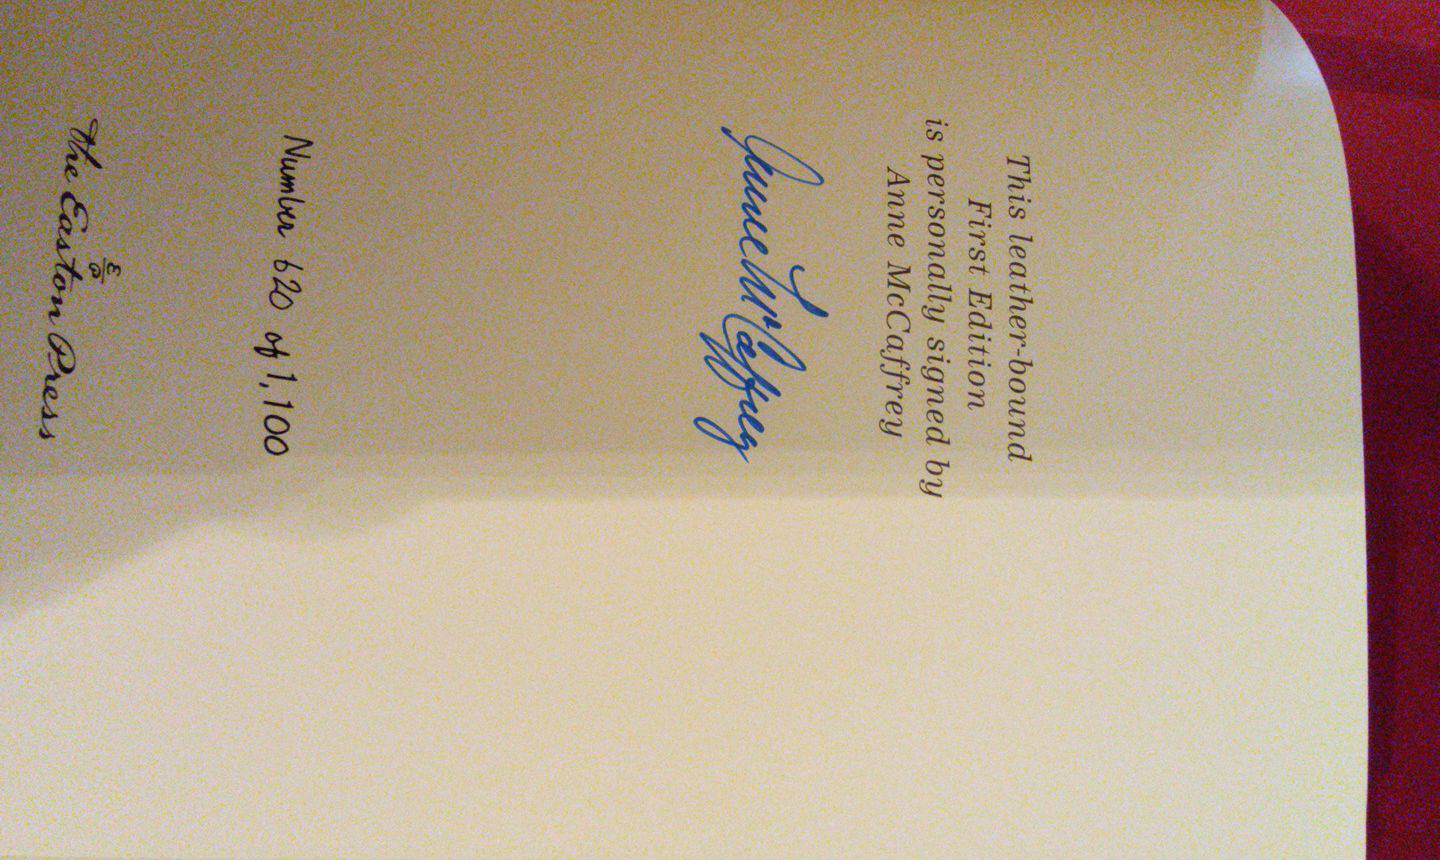 This leather-bound
First Edition
is personally signed by
Anne McCaffrey
Anne McCaffrey
Number 620 of 1,100
E
P
The Easton Press